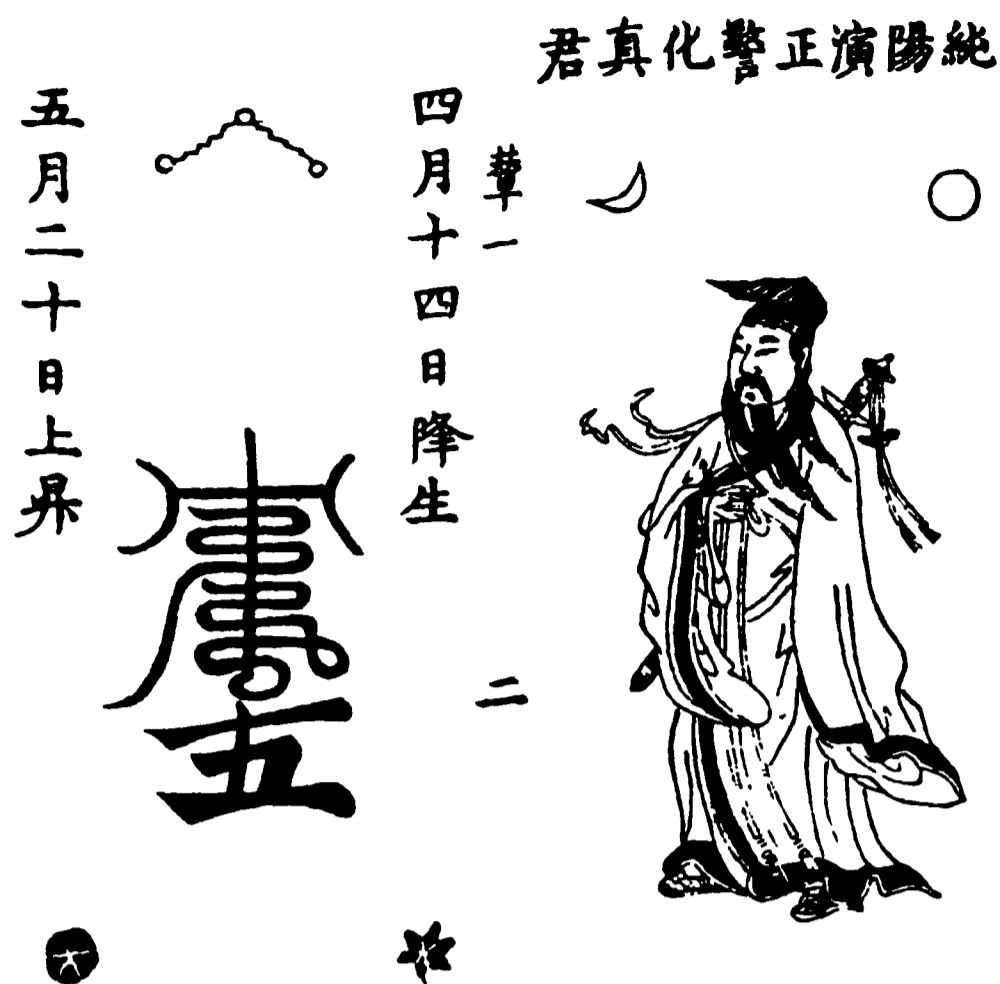 純陽演正警化真君
葷一
二
四月十四日降生
五月二十日上昇
五